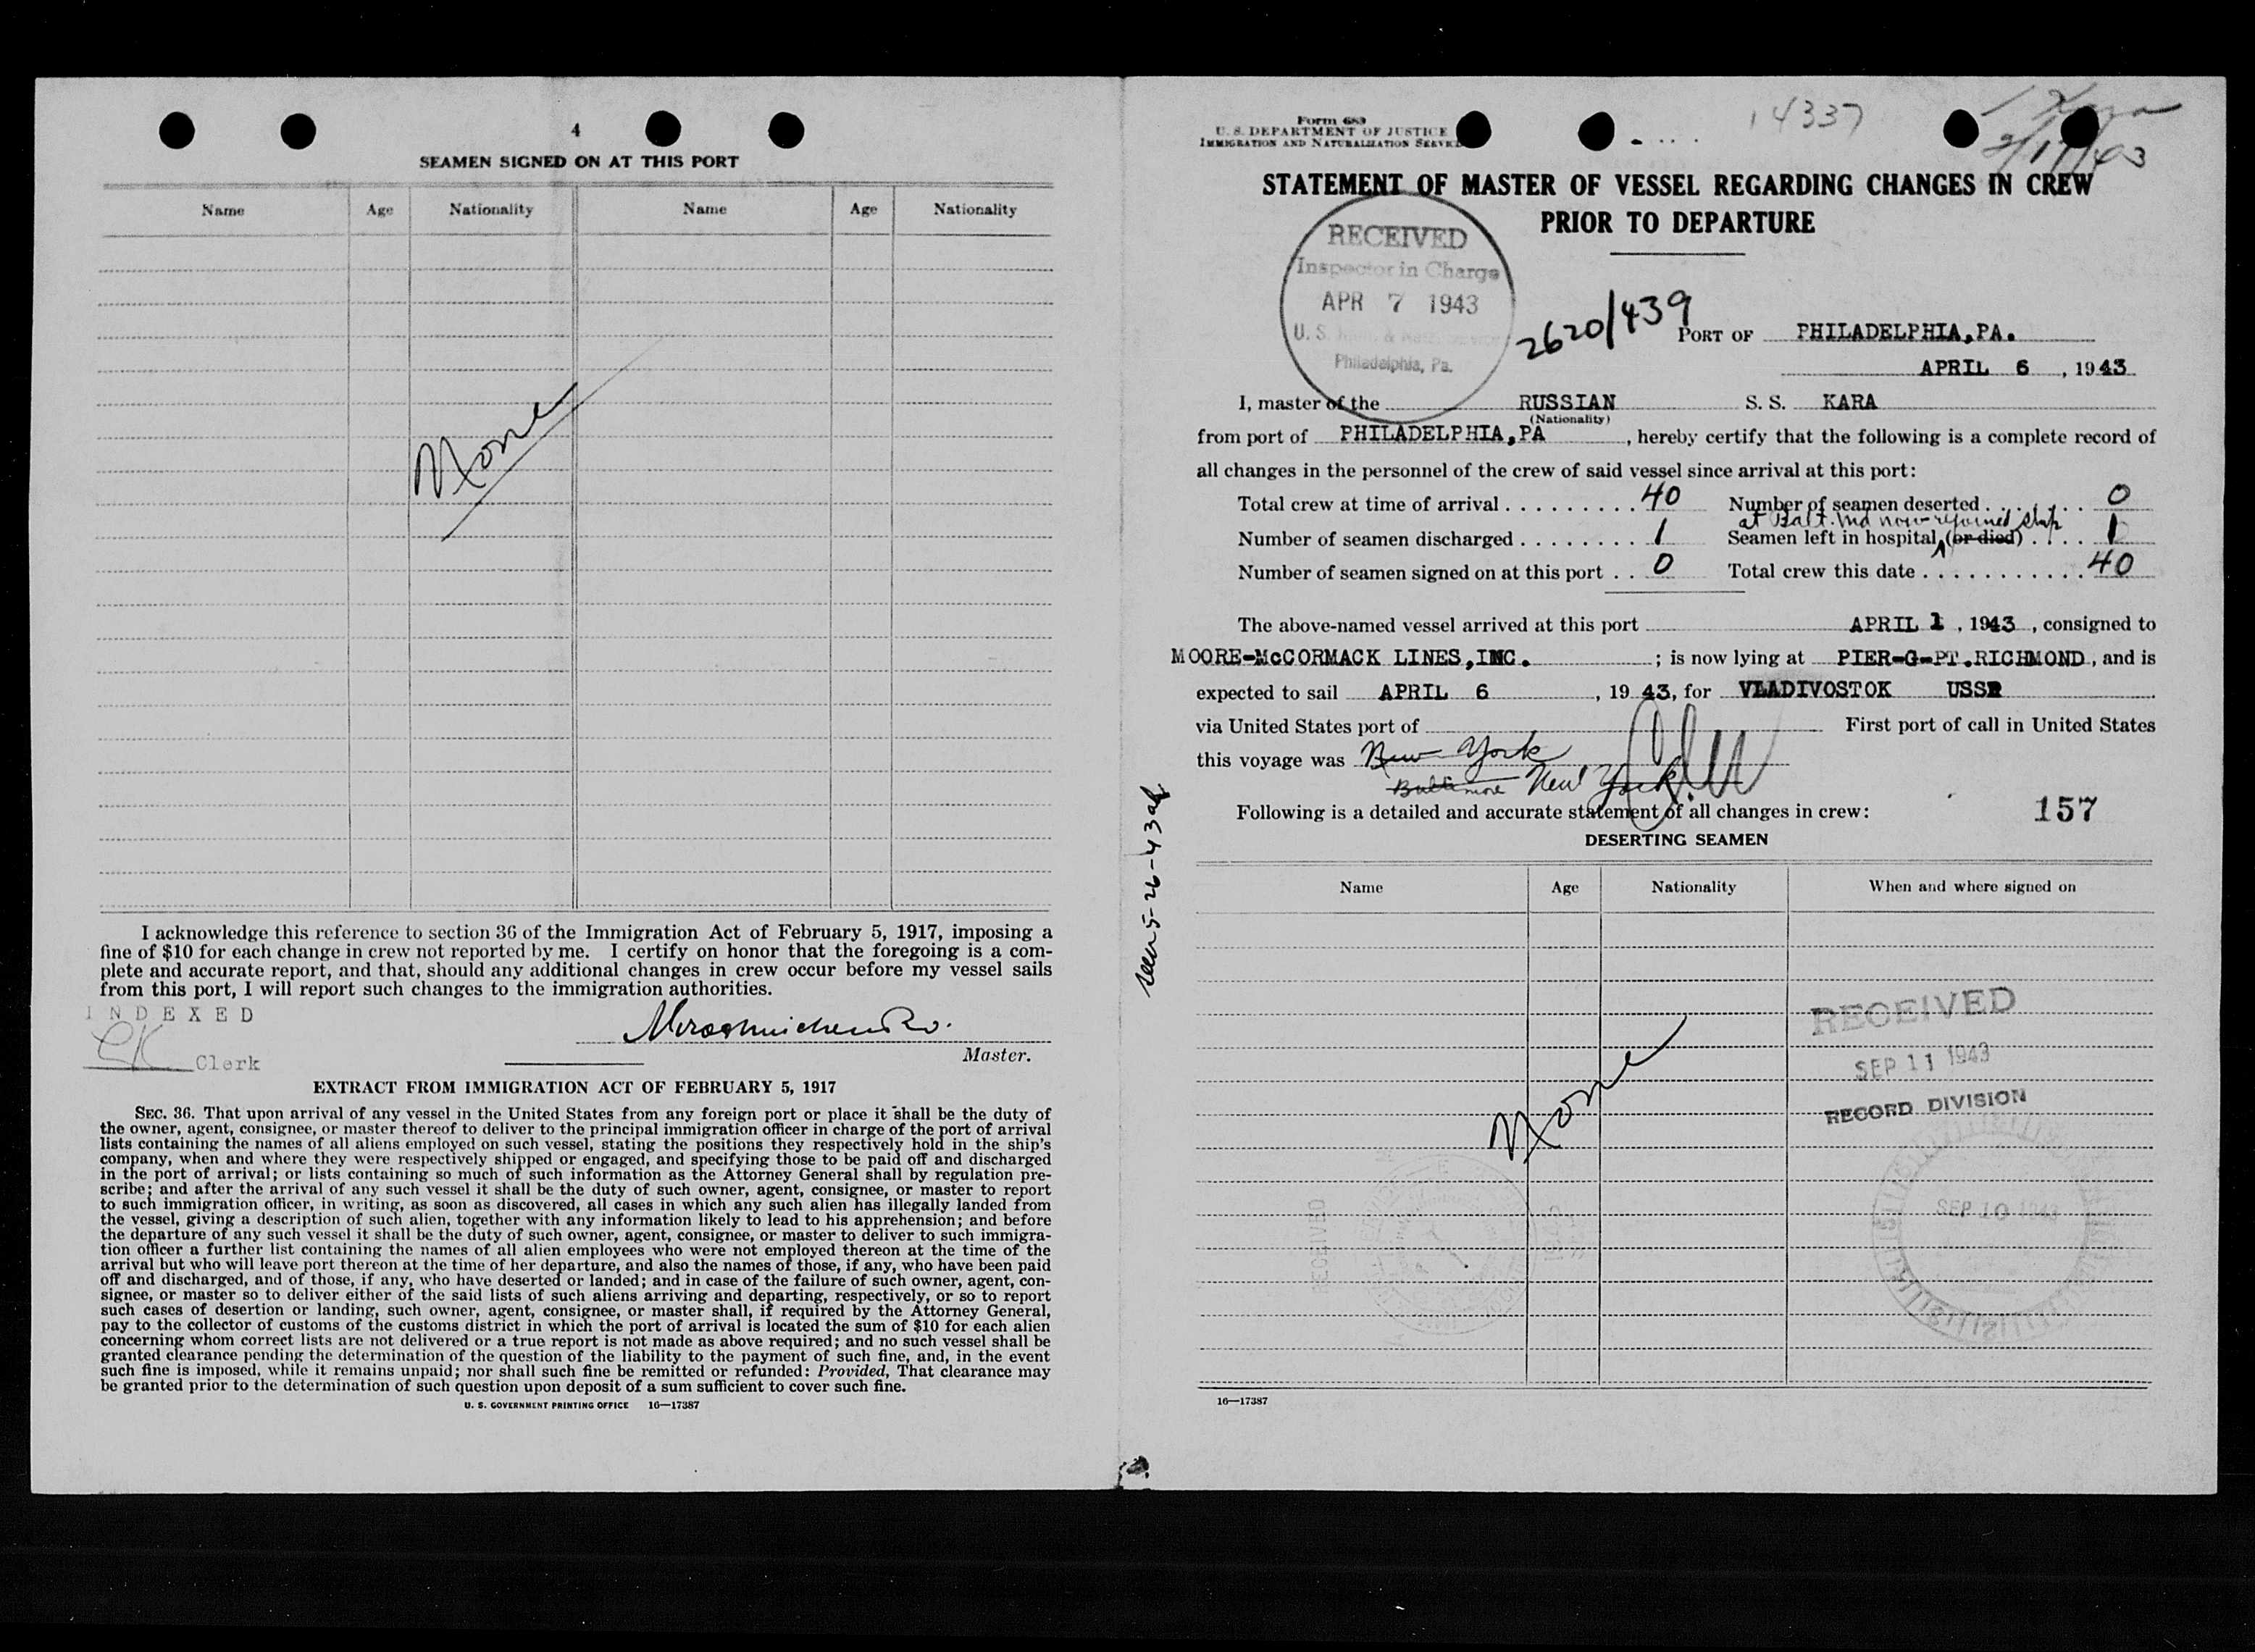 4
SEAMEN SIGNED ON AT THIS PORT
Name Age Nationality Name Age Nationality
None
I acknowledge this reference to section 36 of the Immigration Act of February 5, 1917, imposing a
fine of $10 for each change in crew not reported by me. I certify on honor that the foregoing is a com-
plete and accurate report, and that, should any additional changes in crew occur before my vessel sails
from this port, I will report such changes to the immigration authorities.
INDEXED
Clerk
Master.
EXTRACT FROM IMMIGRATION ACT OF FEBRUARY 5, 1917
SEC. 36. That upon arrival of any vessel in the United States from any foreign port or place it shall be the duty of
the owner, agent, consignee, or master thereof to deliver to the principal immigration officer in charge of the port of arrival
lists containing the names of all aliens employed on such vessel, stating the positions they respectively hold in the ship's
company, when and where they were respectively shipped or engaged, and specifying those to be paid off and discharged
in the port of arrival; or lists containing so much of such information as the Attorney General shall by regulation pre-
scribe; and after the arrival of any such vessel it shall be the duty of such owner, agent, consignee, or master to report
to such immigration officer, in writing, as soon as discovered, all cases in which any such alien has illegally landed from
the vessel, giving a description of such alien, together with any information likely to lead to his apprehension; and before
the departure of any such vessel it shall be the duty of such owner, agent, consignee, or master to deliver to such immigra-
tion officer a further list containing the names of all alien employees who were not employed thereon at the time of the
arrival but who will leave port thereon at the time of her departure, and also the names of those, if any, who have been paid
off and discharged, and of those, if any, who have deserted or landed; and in case of the failure of such owner, agent, con-
signee, or master so to deliver either of the said lists of such aliens arriving and departing, respectively, or so to report
such cases of desertion or landing, such owner, agent, consignee, or master shall, if required by the Attorney General,
pay to the collector of customs of the customs district in which the port of arrival is located the sum of $10 for each alien
concerning whom correct lists are not delivered or a true report is not made as above required; and no such vessel shall be
granted clearance pending the determination of the question of the liability to the payment of such fine, and, in the event
such fine is imposed, while it remains unpaid; nor shall such fine be remitted or refunded: Provided, That clearance may
be granted prior to the determination of such question upon deposit of a sum sufficient to cover such fine.
U. S. GOVERNMENT PRINTING OFFICE 16—17387
Form 689
U. S. DEPARTMENT OF JUSTICE
IMMIGRATION AND NATURALIZATION SERVICE
14337
STATEMENT OF MASTER OF VESSEL REGARDING CHANGES IN CREW
PRIOR TO DEPARTURE
RECEIVED
Inspector in Charge
APR 7 1943
U. S.
Philadelphia, Pa.
2620/439
PORT OF PHILADELPHIA,PA.
APRIL 6, 1943
I, master of the RUSSIAN S. S. KARA
(Nationality)
from port of PHILADELPHIA,PA, hereby certify that the following is a complete record of
all changes in the personnel of the crew of said vessel since arrival at this port:
Total crew at time of arrival 40 Number of seamen deserted 0
at Balt. Md now rejoined ship
Number of seamen discharged 1 Seamen left in hospital (or died) 1
Number of seamen signed on at this port 0 Total crew this date 40
The above-named vessel arrived at this port APRIL 1, 1943, consigned to
MOORE-McCORMACK LINES,INC.; is now lying at PIER-G-PT.RICHMOND, and is
expected to sail APRIL 6, 1943, for VLADIVOSTOK USSR
via United States port of First port of call in United States
this voyage was New York
Baltimore New York
seen 5-26-43
Following is a detailed and accurate statement of all changes in crew:
157
DESERTING SEAMEN
Name Age Nationality When and where signed on
None
RECEIVED
SEP 11 1943
RECORD DIVISION
RECEIVED
SEP 10 1943
16—17387